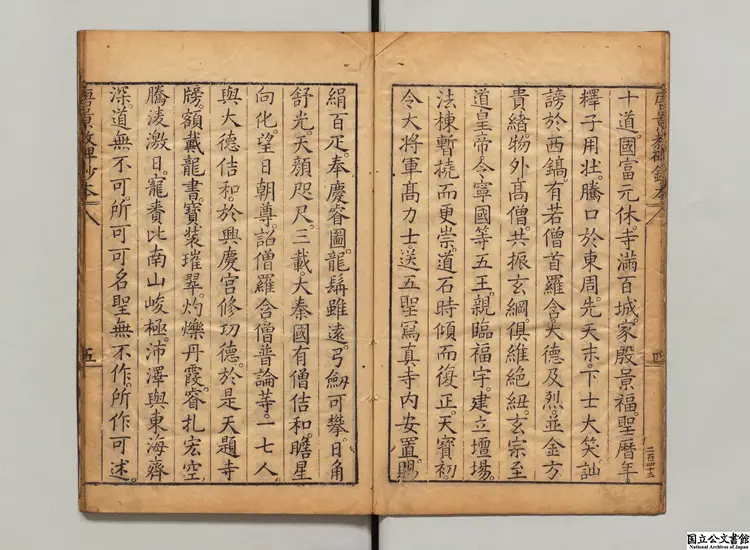 唐景教碑鈔本
四
二百四十五
十道。國富元休。寺滿百城。家殷景福。聖曆年
釋子用壯。騰口於東周。先天末。下士大笑。訕
謗於西鎬。有若僧首羅含大德及烈。並金方
貴緒物外髙僧。共振玄綱。俱維絕紐。玄宗至
道皇帝令寧國等五王。親臨福宇。建立壇場。
法棟暫橈而更崇。道石時傾而復正。天寶初
令大將軍髙力士。送五聖寫真寺內安置。賜
絹百疋。奉慶睿圖。龍髯雖遠。弓劒可攀。日角
舒光。天顏咫尺。三載。大秦國有僧佶和。瞻星
向化。望日朝尊。詔僧羅含僧普論等。一七人。
與大德佶和。於興慶宮修功德。於是天題寺
牓。額戴龍書。寶裝璀翠。灼爍丹霞。睿扎宏空
騰淩激日。寵賚比南山峻極。沛澤與東海齊
深。道無不可。所可可名。聖無不作。所作可述。
唐景教碑鈔本
五
国立公文書館
National Archives of Japan